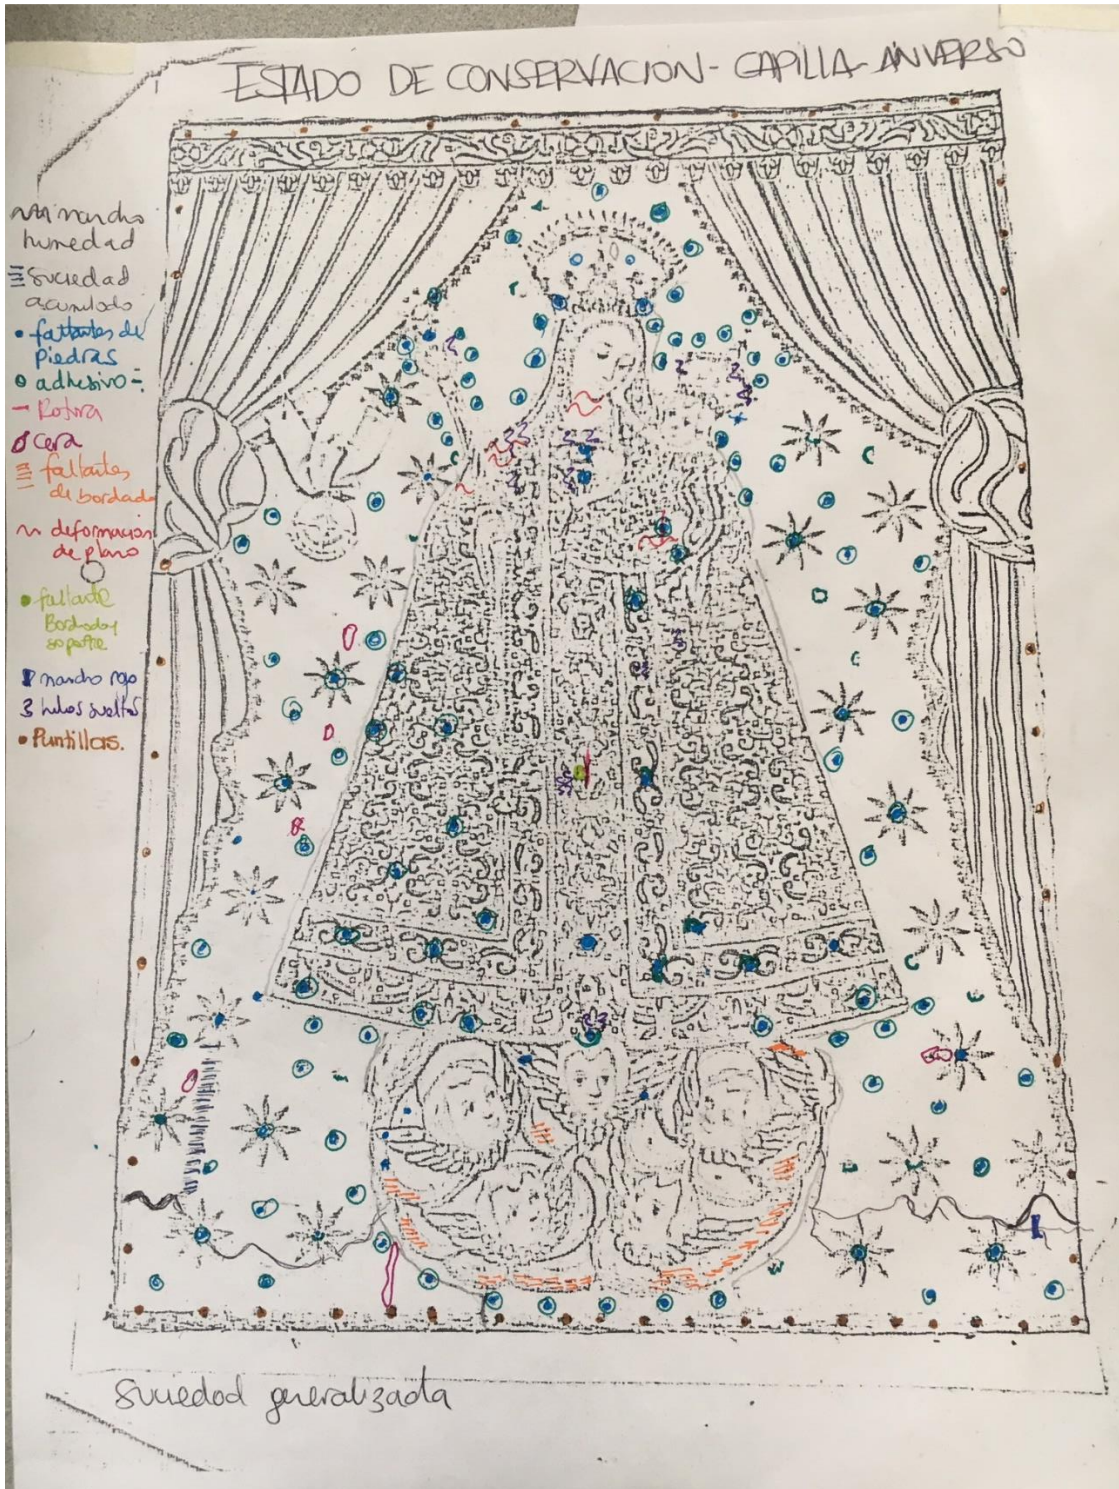 ESTADO DE CONSERVACION - CAPILLA - ANVERSO
mancha
humedad
suciedad
acumulada
faltantes de
piedras
adhesivo
Rotura
cera
faltantes
de bordado
deformacion
de plano
faltante
Bordado y
soporte
mancha roja
hilos sueltos
Puntillas.
Suciedad generalizada